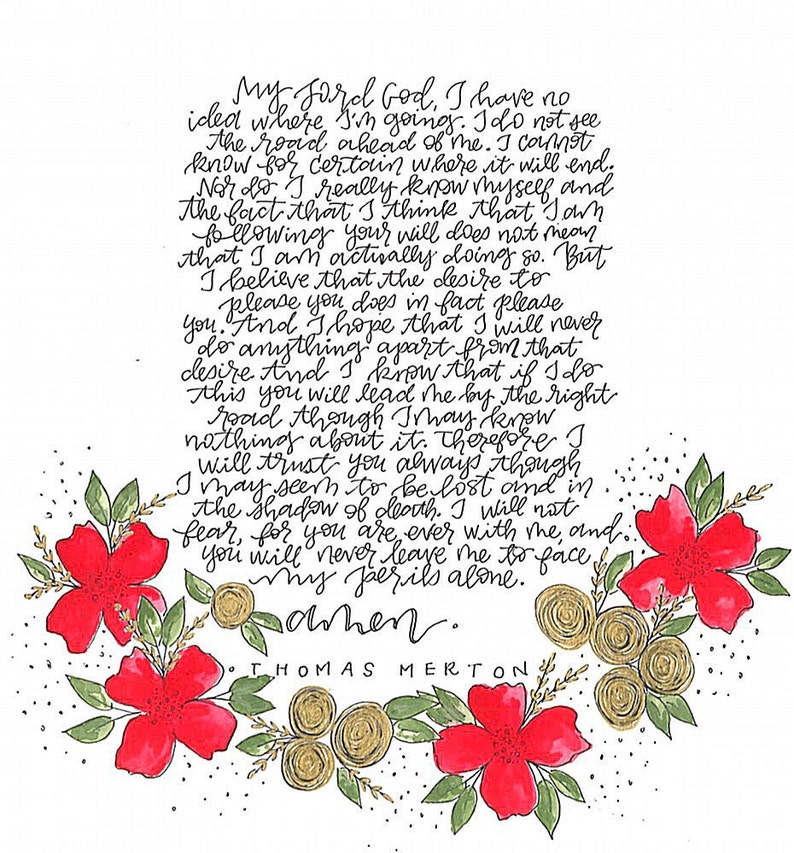 My Lord God, I have no
idea where I'm going. I do not see
the road ahead of me. I cannot
know for certain where it will end.
Nor do I really know myself and
the fact that I think that I am
following your will does not mean
that I am actually doing so. But
I believe that the desire to
please you does in fact please
you. And I hope that I will never
do anything apart from that
desire And I know that if I do
this you will lead me by the right
road though I may know
nothing about it. Therefore I
will trust you always though
I may seem to be lost and in
the shadow of death. I will not
fear, for you are ever with me, and
you will never leave me to face
my perils alone.
amen.
THOMAS MERTON